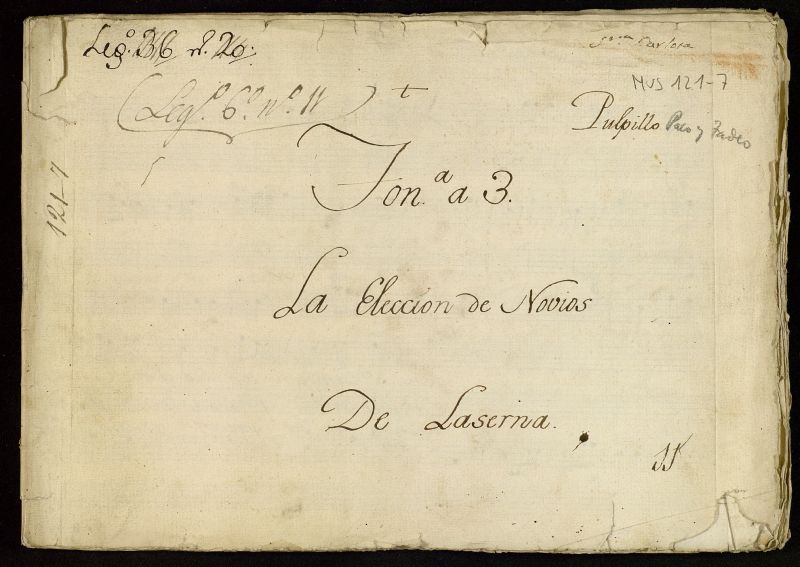 Leg.º 36 n. 20.
Sra. Carlota
MUS 121-7
(Leg.º 6.º n.º 11)
+
Pulpillo Paco y Tadeo
Ton.ª a 3.
121-7
La Eleccion de Novios
De Laserna.
11